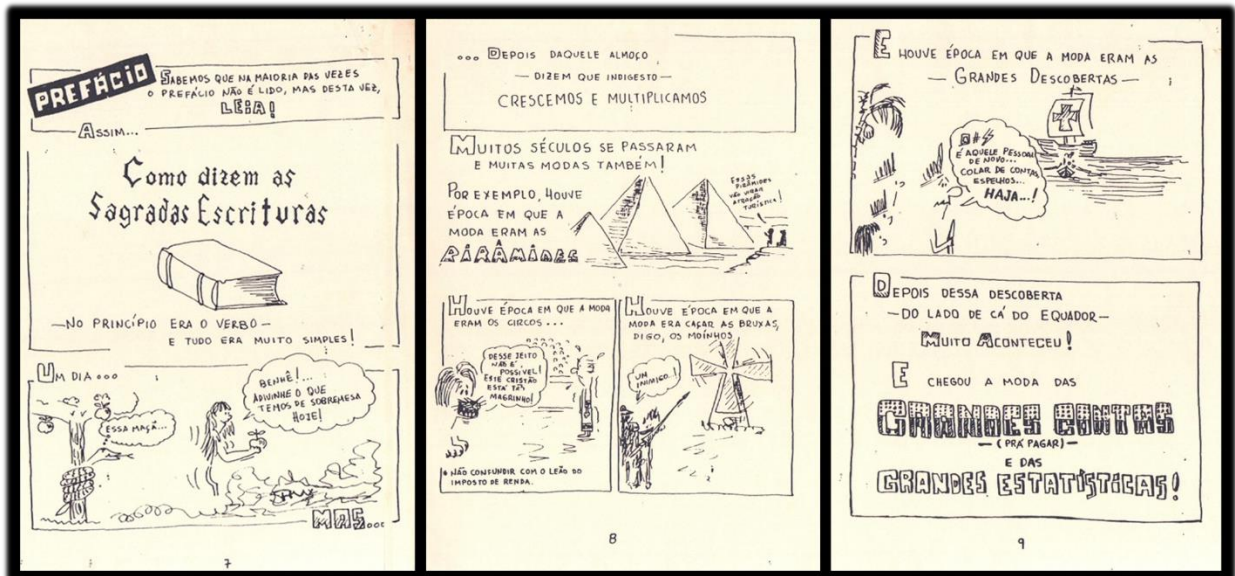 PREFÁCIO
SABEMOS QUE NA MAIORIA DAS VEZES
O PREFÁCIO NÃO É LIDO, MAS DESTA VEZ,
LEIA!
ASSIM...
Como dizem as
Sagradas Escrituras
—NO PRINCÍPIO ERA O VERBO—
E TUDO ERA MUITO SIMPLES!
UM DIA...
ESSA MAÇÃ...
BENHÊ!...
ADIVINHE O QUE
TEMOS DE SOBREMESA
HOJE!
MAS...
7
... DEPOIS DAQUELE ALMOÇO
— DIZEM QUE INDIGESTO —
CRESCEMOS E MULTIPLICAMOS
MUITOS SÉCULOS SE PASSARAM
E MUITAS MODAS TAMBÉM!
POR EXEMPLO, HOUVE
ÉPOCA EM QUE A
MODA ERAM AS
PIRÂMIDES
ESSAS
PIRÂMIDES
VÃO VIRAR
ATRAÇÃO
TURÍSTICA!
HOUVE ÉPOCA EM QUE A MODA
ERAM OS CIRCOS...
DESSE JEITO
NÃO É
POSSÍVEL!
ESTE CRISTÃO
ESTÁ TÃO
MAGRINHO!
* NÃO CONFUNDIR COM O LEÃO DO
IMPOSTO DE RENDA.
HOUVE ÉPOCA EM QUE A
MODA ERA CAÇAR AS BRUXAS,
DIGO, OS MOÍNHOS
UM
INIMIGO..!
8
E HOUVE ÉPOCA EM QUE A MODA ERAM AS
— GRANDES DESCOBERTAS —
@#
É AQUELE PESSOAL
DE NOVO...
COLAR DE CONTAS
ESPELHOS...
HAJA...!
DEPOIS DESSA DESCOBERTA
—DO LADO DE CÁ DO EQUADOR—
MUITO ACONTECEU!
E CHEGOU A MODA DAS
GRANDES CONTAS
—(PRÁ PAGAR)—
E DAS
GRANDES ESTATÍSTICAS!
9